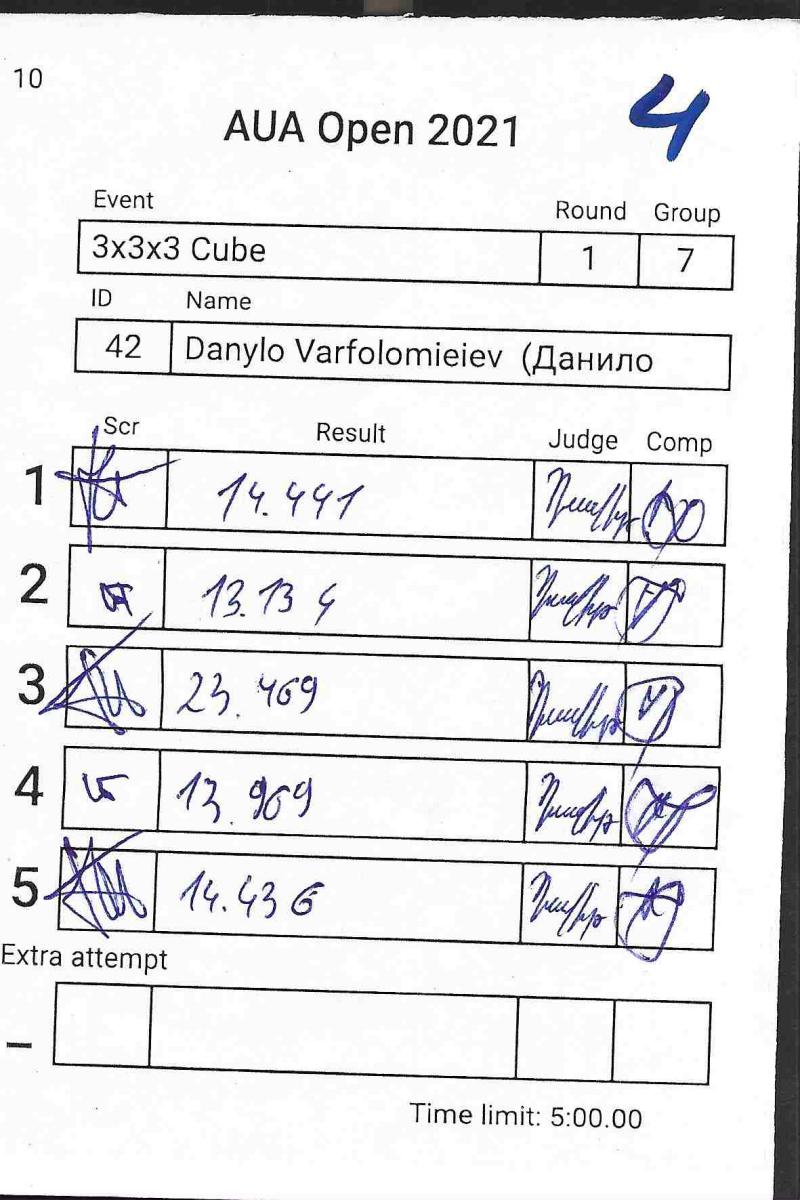 10
4
AUA Open 2021
Event Round Group
3x3x3 Cube 1 7
ID Name
42 Danylo Varfolomieiev (Данило
Scr Result Judge Comp
1 14.441
2 13.134
3 23.469
4 13.969
5 14.436
Extra attempt
_
Time limit: 5:00.00